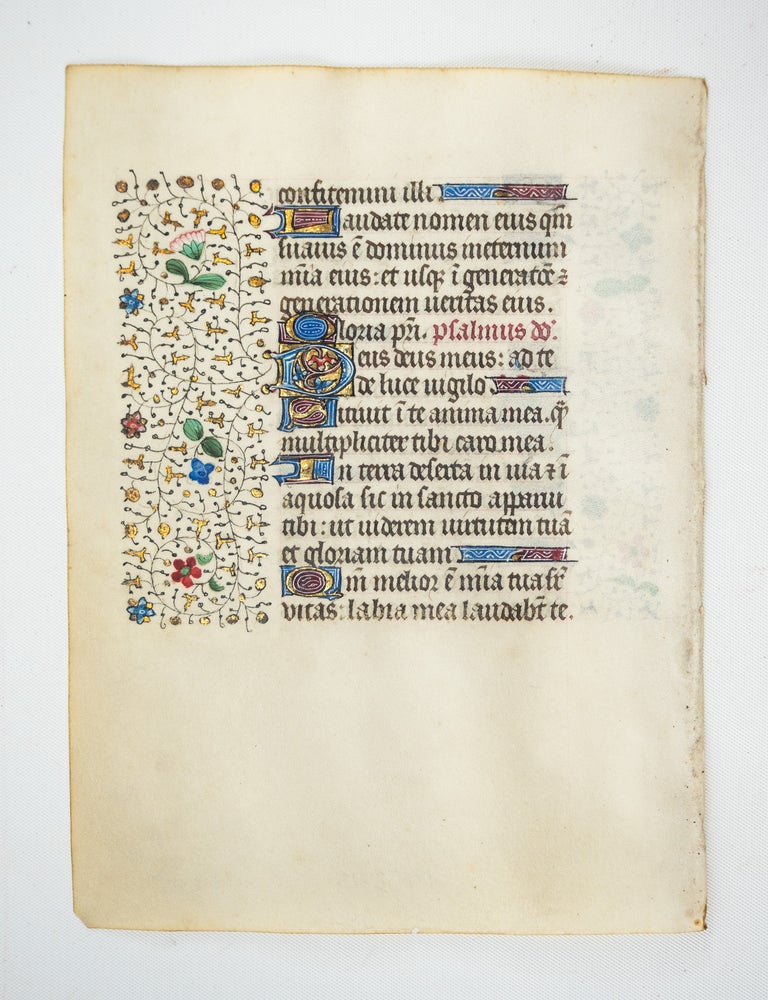 confitemini illi
Laudate nomen eius qm̄
suauis ē dominus ineternum
mīa eius: et usqꝫ ī generatōē ⁊
generationem ueritas eius.
Gloria pr̄i. psalmus dd̄.
Deus deus meus: ad te
de luce uigilo
Sitiuit ī te anima mea. ꝙ̄
multipliciter tibi caro mea.
In terra deserta in uia ⁊ ī
aquosa sic in sancto apparui
tibi: ut uiderem uirtutem tuā
et gloriam tuam
Qm̄ melior ē mīa tua sr̄
vitas: labia mea laudabt̄ te.